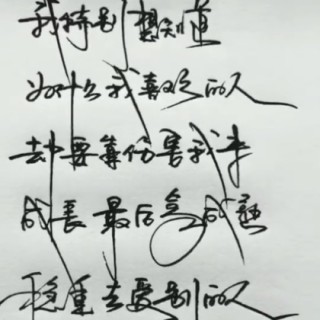 我特别想知道
为什么我喜欢的人
却要靠伤害我来
成长最后变成熟
稳重去爱别的人